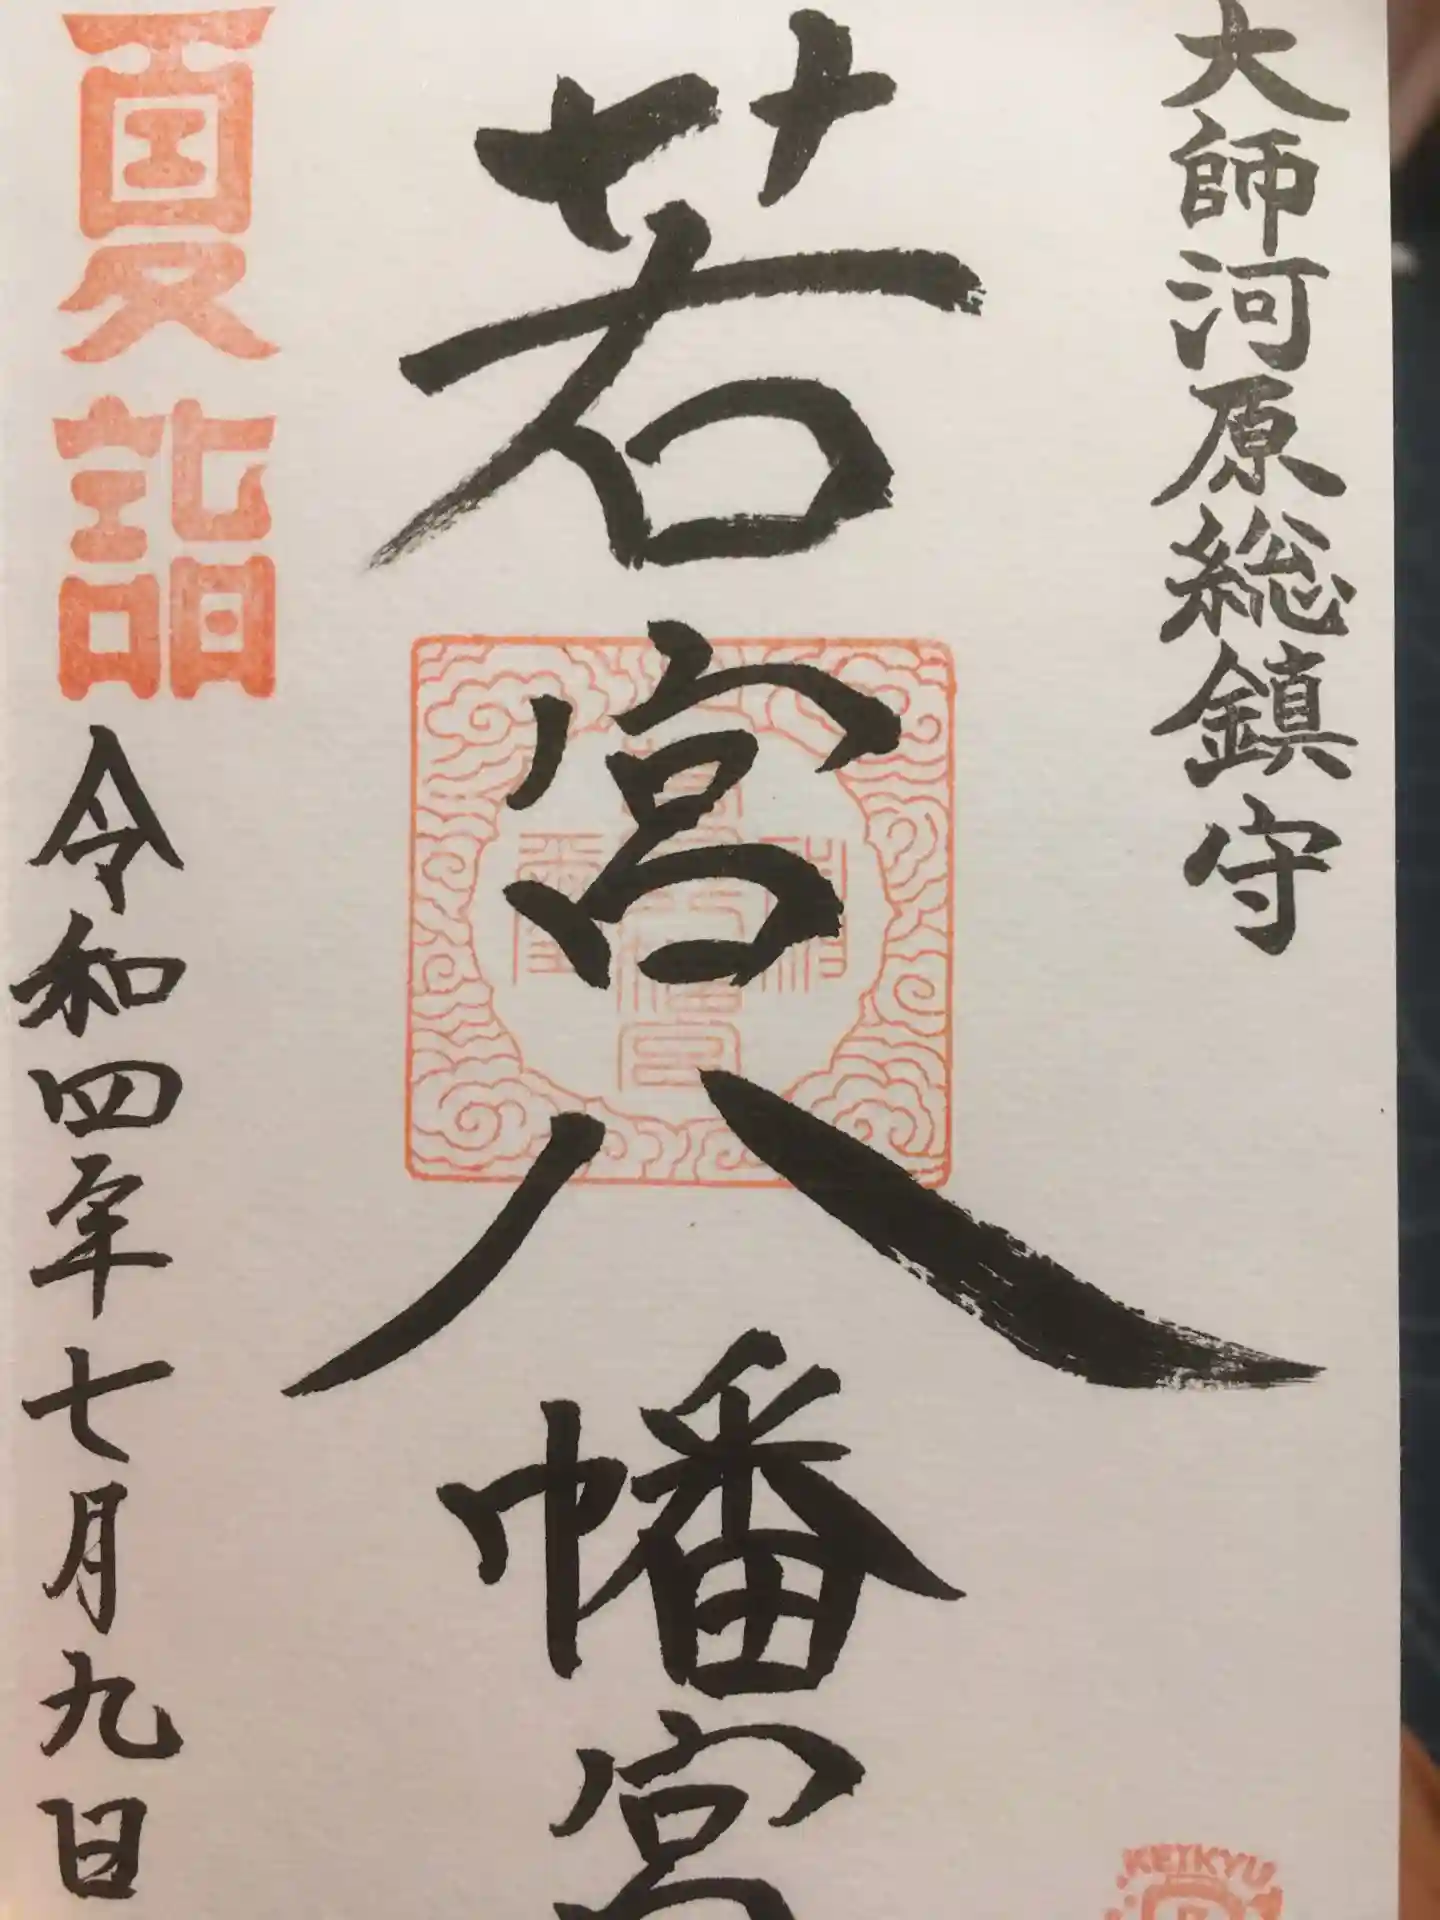 大師河原総鎮守
若宮八幡宮
夏詣
令和四年七月九日
KEIKYU